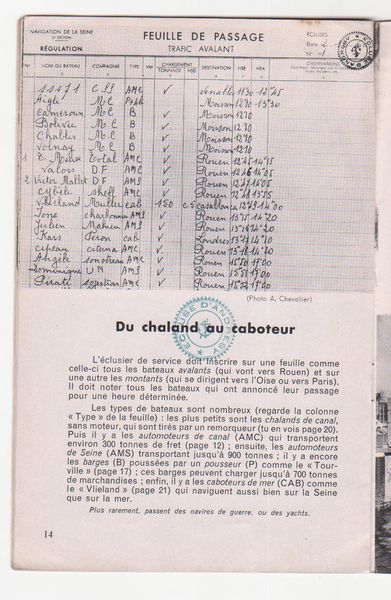 NAVIGATION DE LA SEINE
2e SECTION
FEUILLE DE PASSAGE
ÉCLUSES
RÉGULATION
TRAFIC AVALANT
Date 2
N° 1
N° NOM DU BATEAU COMPAGNIE TYPE VM CHARGEMENT DESTINATION HSE HEA OBSERVATIONS
TONNAGE
SS71 CSS AMC ✓ Venables 1130 12.45
Aigle M.C ✓ Mousson 1270 13.30
Cameroun M.C B ✓ Mousson 1270
Bolivie M.C B ✓ Mousson 1270
Chablis M.C B ✓ Mousson 1270
Volnay M.C B ✓ Mousson 1270
Total AMC ✓ Rouen 12.45 14.15
Valois DF ✓ Rouen 12.46 14.05
2 Victor Mallet DF AMC ✓ Rouen 12.47 14.05
Cybèle Shell AMC ✓ Rouen
Vlieland Muller cab 150 c.5 Casablanca 12.49 14.00
AMS ✓ Rouen 14.20
Julien Mahieu AMS ✓ Rouen 14.20
Kars Feron cab ✓ Londres 14.10
AMC ✓ Rouen 14.20
Angèle AMC ✓ Rouen 15.50 17.00
Dominique UM AMS ✓ Rouen 17.00
Pirate AMC ✓ Rouen 17.00
(Photo A. Chevallier)
Du chaland au caboteur
ECLUSE D'ANDRESY
L'éclusier de service doit inscrire sur une feuille comme
celle-ci tous les bateaux avalants (qui vont vers Rouen) et sur
une autre les montants (qui se dirigent vers l'Oise ou vers Paris).
Il doit noter tous les bateaux qui ont annoncé leur passage
pour une heure déterminée.
Les types de bateaux sont nombreux (regarde la colonne
« Type » de la feuille) : les plus petits sont les chalands de canal,
sans moteur, qui sont tirés par un remorqueur (tu en vois page 20).
Puis il y a les automoteurs de canal (AMC) qui transportent
environ 300 tonnes de fret (page 12) ; ensuite, les automoteurs
de Seine (AMS) transportant jusqu'à 900 tonnes ; il y a encore
les barges (B) poussées par un pousseur (P) comme le « Tour-
ville » (page 17) ; ces barges peuvent charger jusqu'à 700 tonnes
de marchandises ; enfin, il y a les caboteurs de mer (CAB) comme
le « Vlieland » (page 21) qui naviguent aussi bien sur la Seine
que sur la mer.
Plus rarement, passent des navires de guerre, ou des yachts.
14